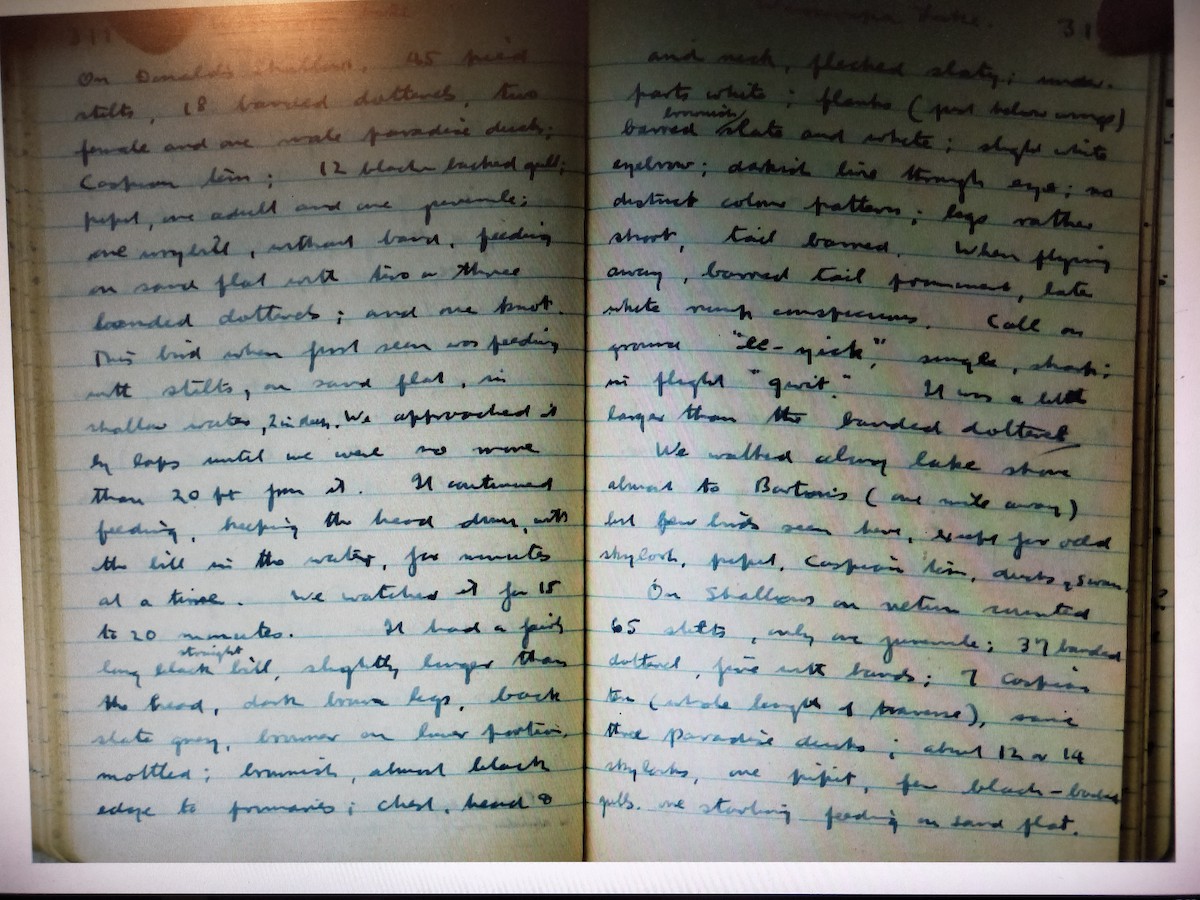 311
On Donald's Shallows. 45 pied
stilts, 18 banded dotterels, two
female and one male paradise ducks;
Caspian tern; 12 black-backed gull;
pipit, one adult and one juvenile;
one wrybill, without band, feeding
on sand flat with two or three
banded dotterels; and one knot.
This bird when first seen was feeding
with stilts, on sand flat, in
shallow water, 2 in deep. We approached it
by laps until we were no more
than 20 ft from it. It continued
feeding, keeping the head down, with
the bill in the water, for minutes
at a time. We watched it for 15
to 20 minutes. It had a fairly
straight
long black bill, slightly longer than
the head, dark brown legs, back
slate grey, browner on lower portion,
mottled; brownish, almost black
edge to primaries; chest, head &
Lake.
31
and neck, flecked slaty; under-
parts white; flanks (just below wings)
brownish
barred slate and white; slight white
eyebrow; darkish line through eye; no
distinct colour pattern; legs rather
short, tail barred. When flying
away, barred tail prominent, later
white rump conspicuous. Call on
ground "ee-yick", single, sharp;
in flight "qwit." It was a little
larger than the banded dotterel
We walked along lake shore
almost to Barton's (one mile away)
but few birds seen here, except for odd
skylark, pipit, Caspian tern, ducks, swan.
On Shallows on return counted
65 stilts, only one juvenile; 37 banded
dotterel, five with bands; 7 Caspian
tern (whole length of traverse), same
three Paradise ducks; about 12 or 14
skylarks, one pipit, few black-backed
gulls. one starling feeding on sand flat.